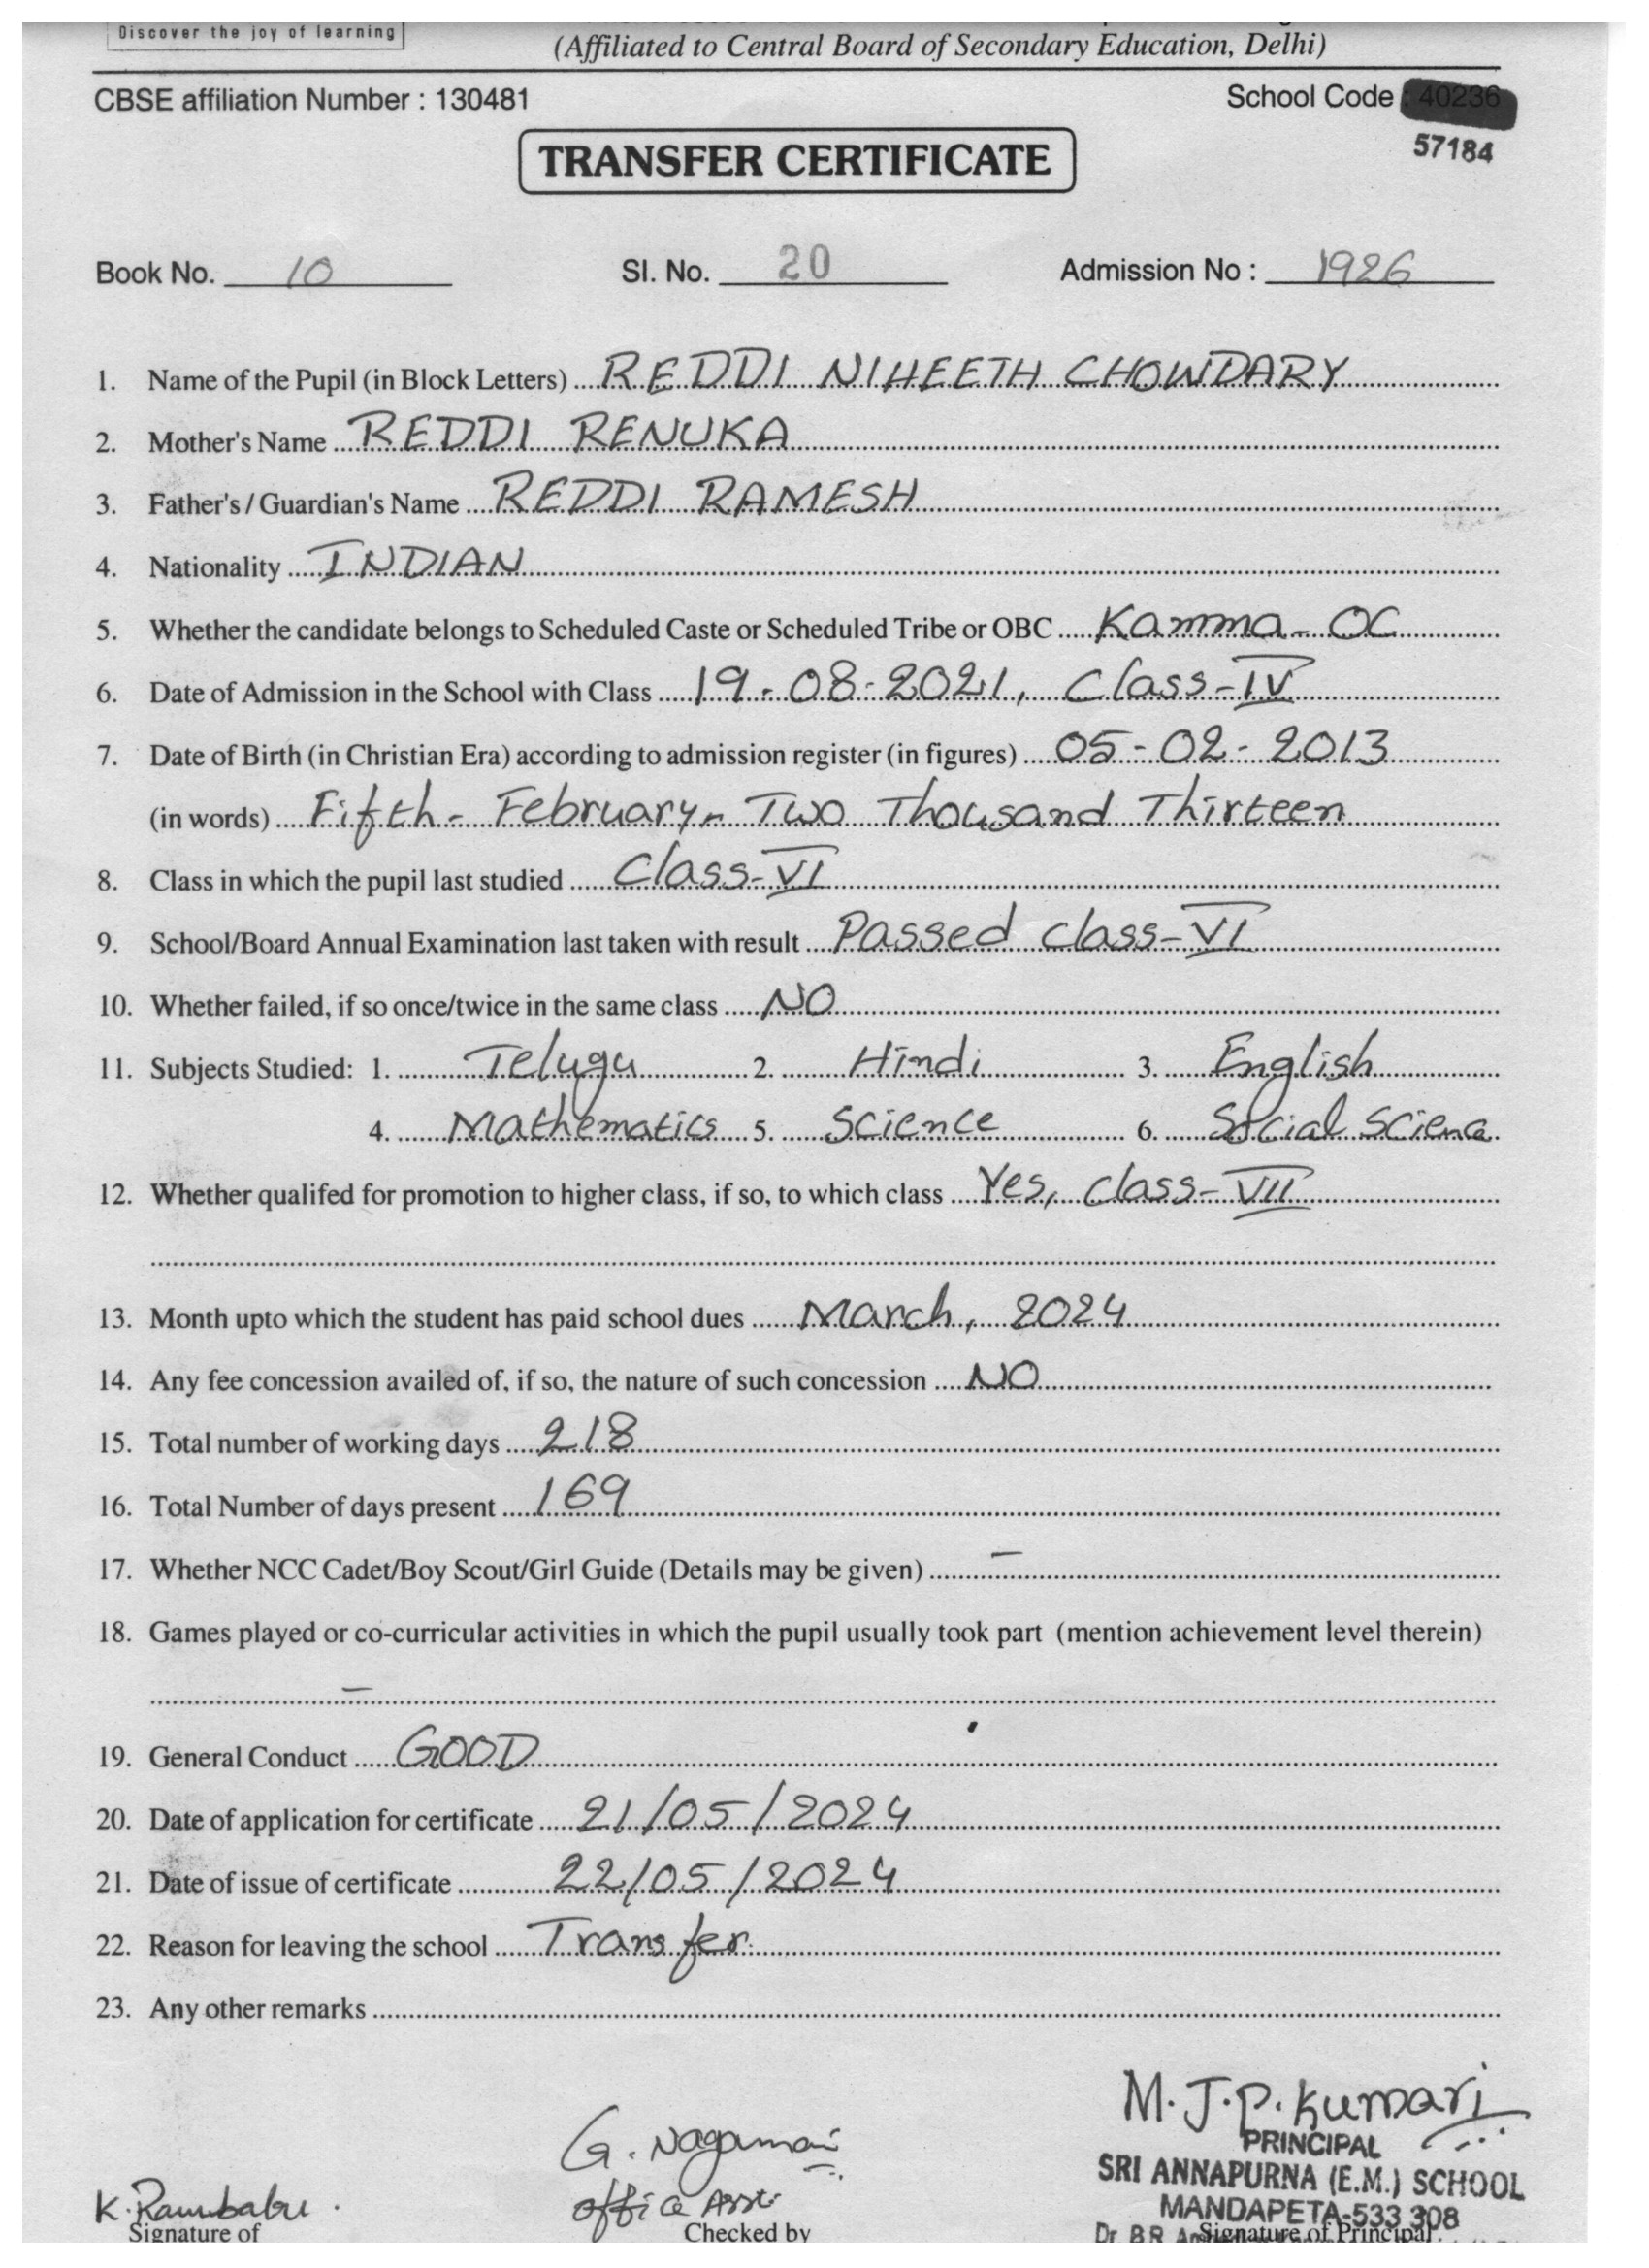 Discover the joy of learning
(Affiliated to Central Board of Secondary Education, Delhi)
CBSE affiliation Number : 130481 School Code : 40236
57184
TRANSFER CERTIFICATE
Book No. 10 Sl. No. 20 Admission No : 1926
1. Name of the Pupil (in Block Letters) REDDI NIHEETH CHOWDARY
2. Mother's Name REDDI RENUKA
3. Father's / Guardian's Name REDDI RAMESH
4. Nationality INDIAN
5. Whether the candidate belongs to Scheduled Caste or Scheduled Tribe or OBC Kamma - OC
6. Date of Admission in the School with Class 19-08-2021, Class-IV
7. Date of Birth (in Christian Era) according to admission register (in figures) 05-02-2013
(in words) Fifth - February - Two Thousand Thirteen
8. Class in which the pupil last studied Class-VI
9. School/Board Annual Examination last taken with result Passed class-VI
10. Whether failed, if so once/twice in the same class NO
11. Subjects Studied: 1. Telugu 2. Hindi 3. English
4. Mathematics 5. Science 6. Social Science
12. Whether qualifed for promotion to higher class, if so, to which class Yes, class-VII
13. Month upto which the student has paid school dues March, 2024
14. Any fee concession availed of, if so, the nature of such concession NO
15. Total number of working days 218
16. Total Number of days present 169
17. Whether NCC Cadet/Boy Scout/Girl Guide (Details may be given) –
18. Games played or co-curricular activities in which the pupil usually took part (mention achievement level therein)
–
19. General Conduct GOOD
20. Date of application for certificate 21/05/2024
21. Date of issue of certificate 22/05/2024
22. Reason for leaving the school Transfer
23. Any other remarks
M.J.P. Kumari
PRINCIPAL
SRI ANNAPURNA (E.M.) SCHOOL
MANDAPETA-533 308
G. Nagamani
K. Rambabu
office Asst.
Signature of Checked by Signature of Principal
Dr. B.R.